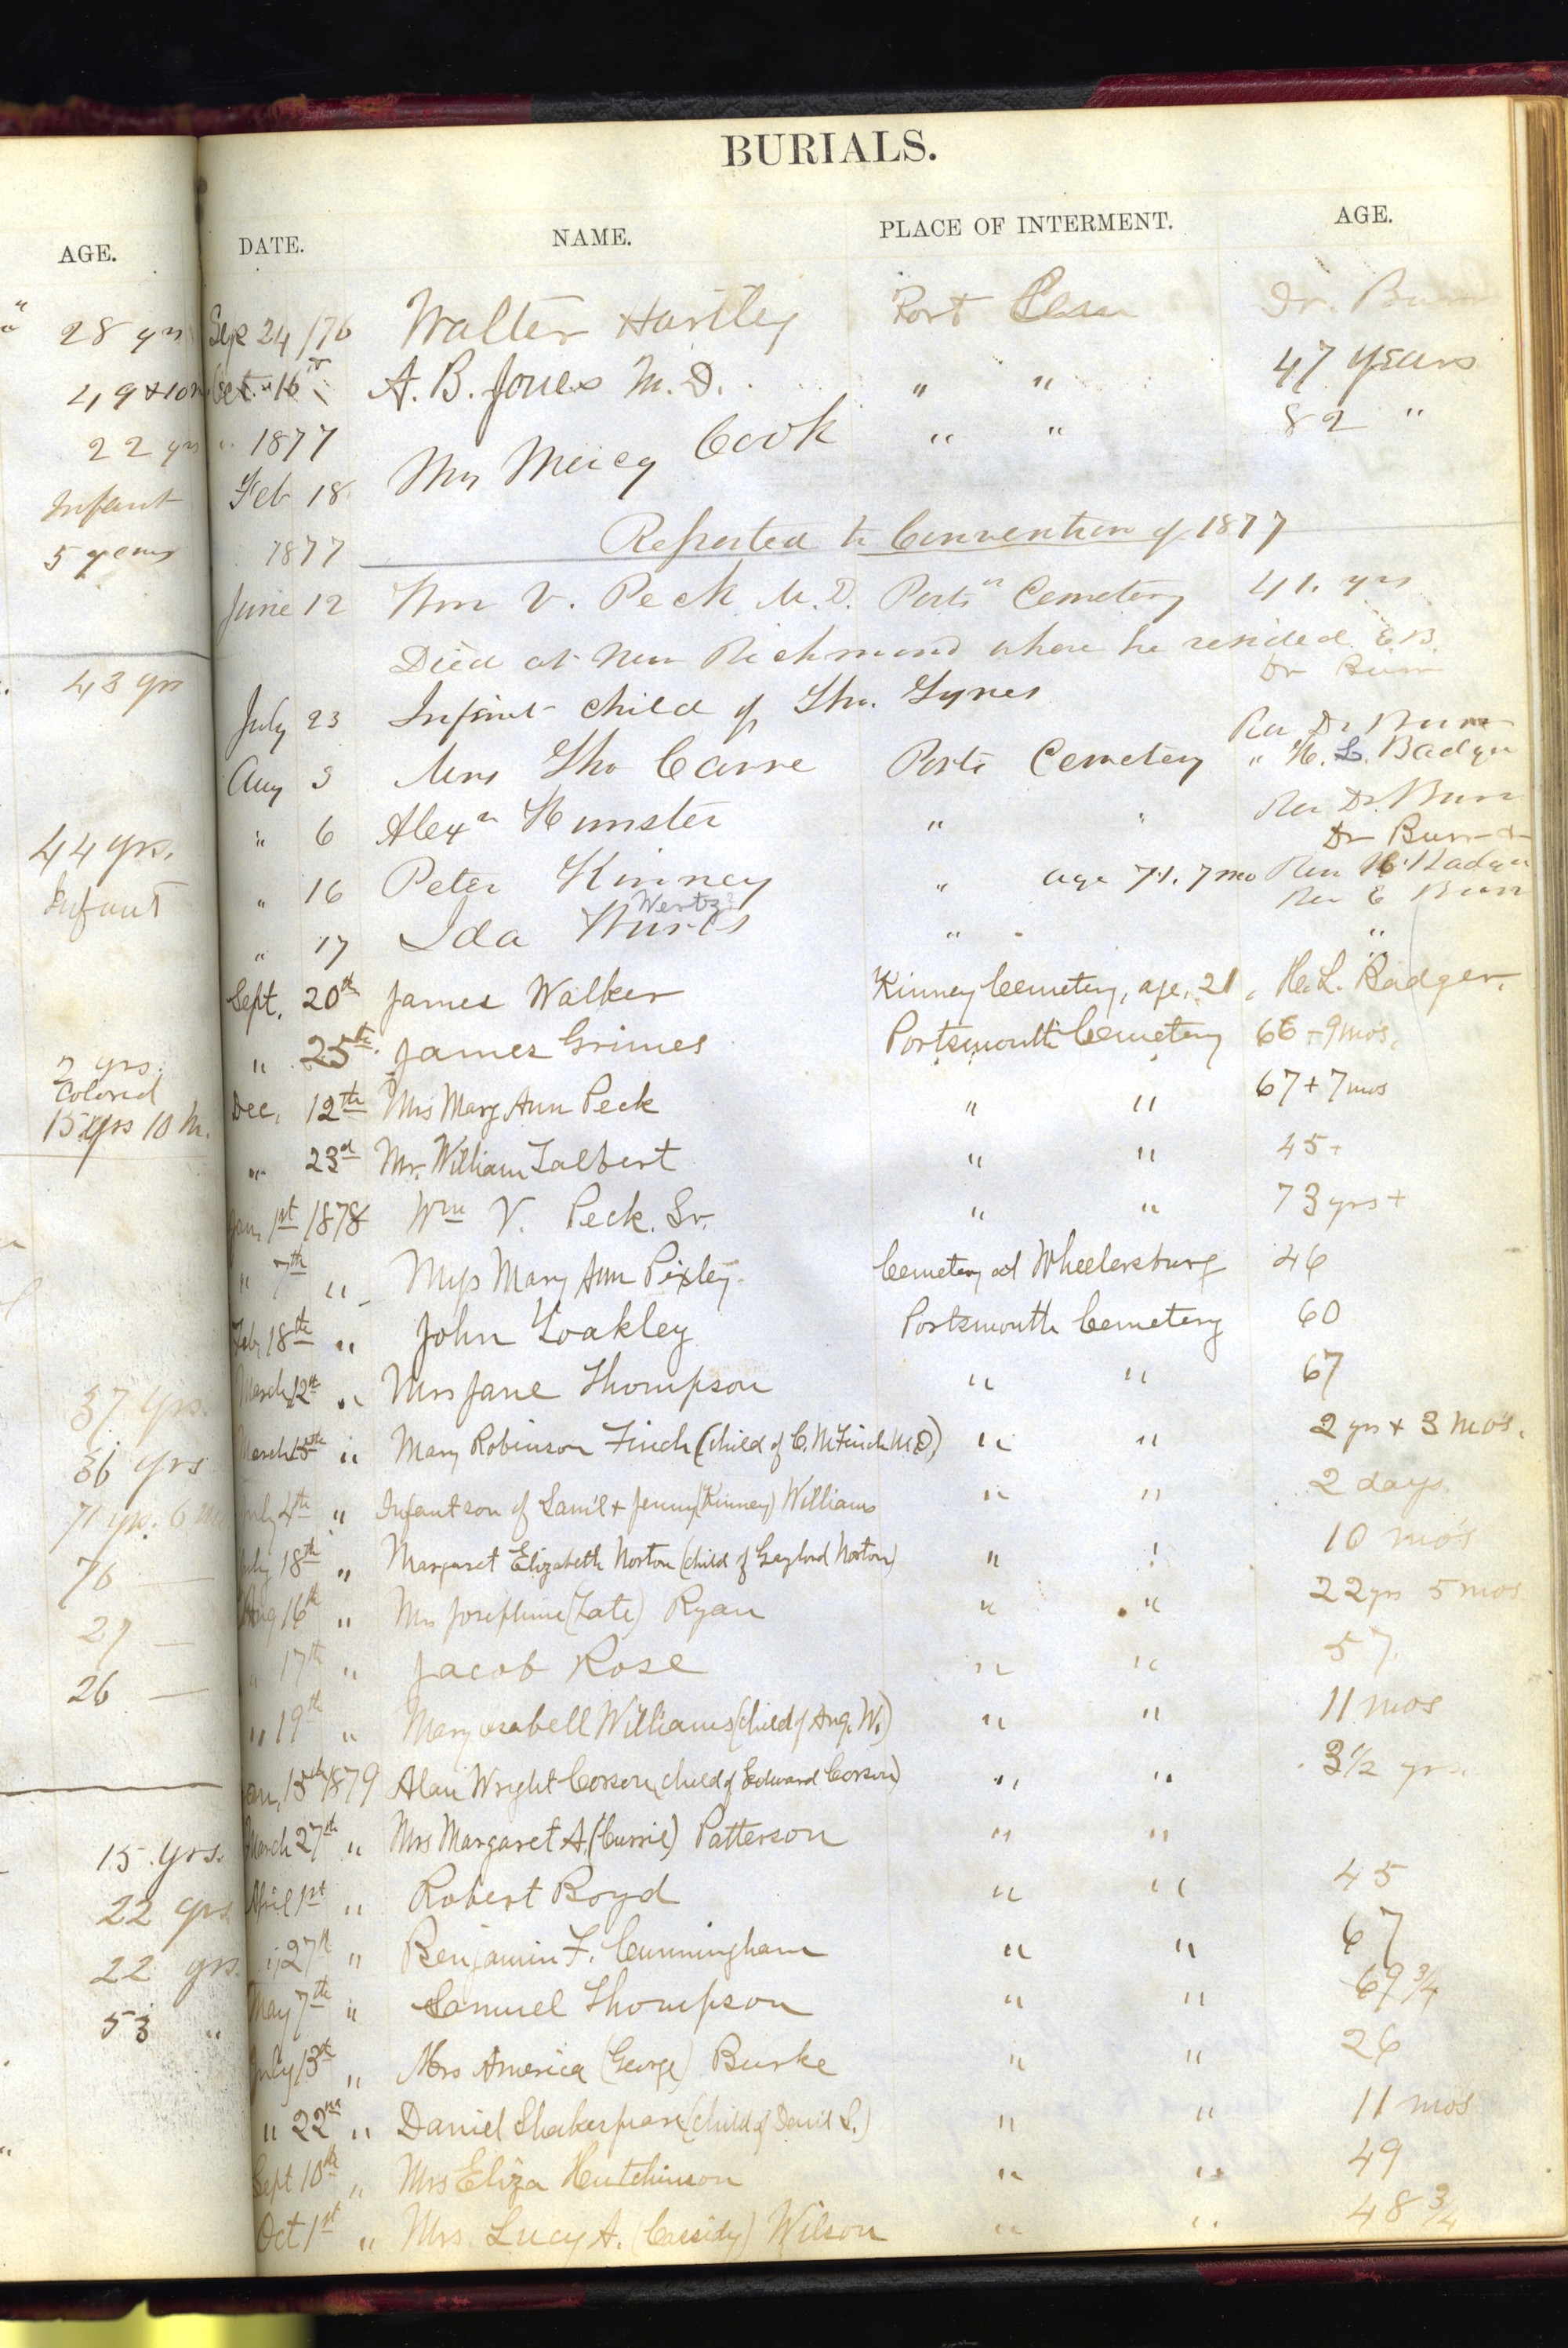 BURIALS.
AGE. DATE. NAME. PLACE OF INTERMENT. AGE.
28 yrs Sep 24/76 Walter Hartley Port Cem Dr. Burr
49 + 10 m Oct. " 16 A. B. Jones M. D. " " 47 years
22 yrs " 1877
Infant Feb 18 Mrs Mercy Cook " " 82 "
5 years 1877 Reported to Convention of 1877
June 12 Wm V. Peck M. D. Ports Cemetery 41. yrs
Died at New Richmond where he resided. E B.
43 yrs July 23 Infant child of Tho. Lynes Dr Burr
Aug 3 Mrs Tho Carre Ports Cemetery Rev Dr Burr
" H. L. Badger
" 6 Alexr Hunster " " Rev Dr. Burr
44 yrs. " 16 Peter Kinney " age 71. 7 mo Dr Burr +
Rev H. Badger
Infant " 17 Ida Wurts " Rev E Burr
Wertz?
Sept. 20th James Walker Kinney Cemetery, age, 21, H. L. Badger.
" 25th. James Grimes Portsmouth Cemetery 66 + 9 mos.
2 yrs.
Colored
15 yrs 10 m. Dec. 12th Mrs Mary Ann Peck " " 67 + 7 mos
" 23d Mr. William Talbert " " 45 +
Jan. 1st 1878 Wm V. Peck. Sr. " " 73 yrs +
" 7th " Miss Mary Ann Pixley Cemetery at Wheelersburg 46
Feb. 18th " John Yoakley Portsmouth Cemetery 60
37 yrs. March 12th " Mrs Jane Thompson " " 67
36 yrs March 15th " Mary Robinson Finch (child of C. M. Finch M.D) " " 2 yrs + 3 mo's.
71 yrs. 6 m July 4th " Infant son of Sam'l + Jenny (Kinney) Williams " " 2 days.
76 — July 18th " Margaret Elizabeth Norton (child of Gaylord Norton) " " 10 mo's
27 — Aug 16th " Mrs Josephine (Tate) Ryan " " 22 yrs 5 mos
26 — " 17th " Jacob Rose " " 57.
" 19th " Mary Isabell Williams (child of Aug. W.) " " 11 mos
Jan. 15th 1879 Alan Wright Corson, child of Edward Corson) " " 3 1/2 yrs.
15. yrs. March 27th " Mrs Margaret A. (Currie) Patterson " "
22 yrs April 1st " Robert Boyd " " 45
22 yrs. " 27th " Benjamin F. Cunningham " " 67
53 " May 7th " Samuel Thompson " " 69 3/4
July 13th " Mrs America (George) Burke " " 26
" 22nd " Daniel Shakespeare (child of David S.) " " 11 mos
Sept 10th " Mrs Eliza Hutchinson " " 49
Oct 1st " Mrs. Lucy A. (Cassidy) Wilson " " 48 3/4